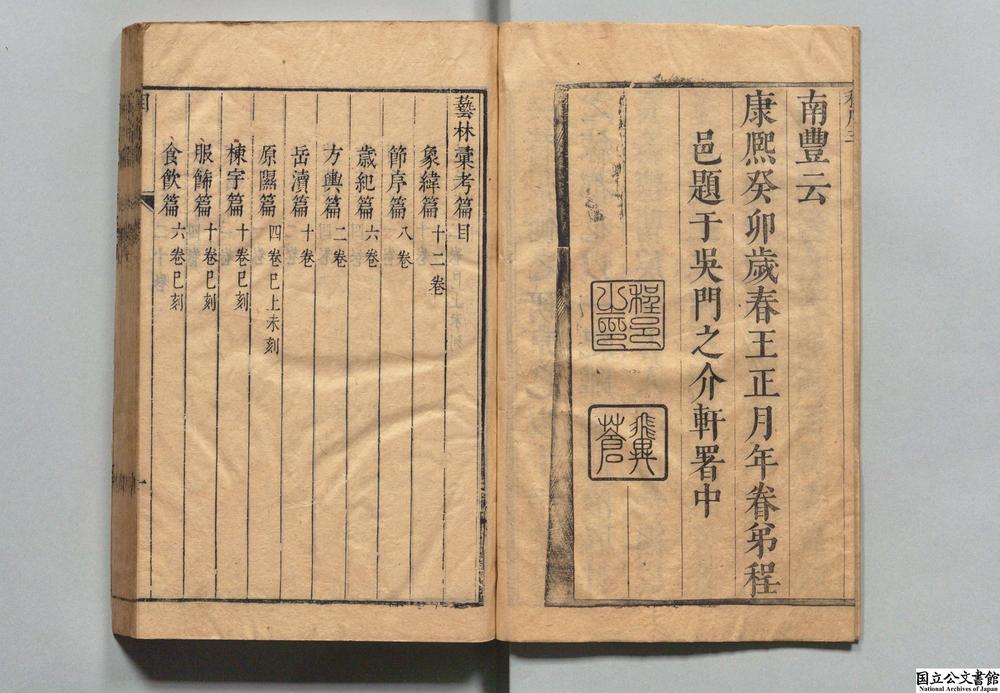 南豐云
康熙癸卯歲春王正月年眷弟程
邑題于吳門之介軒署中
程邑
之印
翼
蒼
藝林彙考篇目
象緯篇十二卷
節序篇八卷
歲紀篇六卷
方輿篇二卷
岳瀆篇十卷
原隰篇四卷已上未刻
棟宇篇十卷已刻
服飾篇十卷已刻
食飲篇六卷已刻
国立公文書館
National Archives of Japan